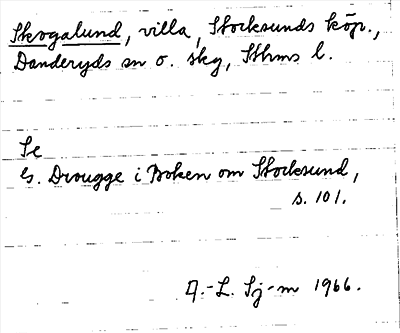 Skogalund, villa, Stocksunds köp.,
Danderyds sn o. skg, Sthms l.
Se
G. Drougge i Boken om Stocksund,
s. 101.
A.-L. Sj-m 1966.